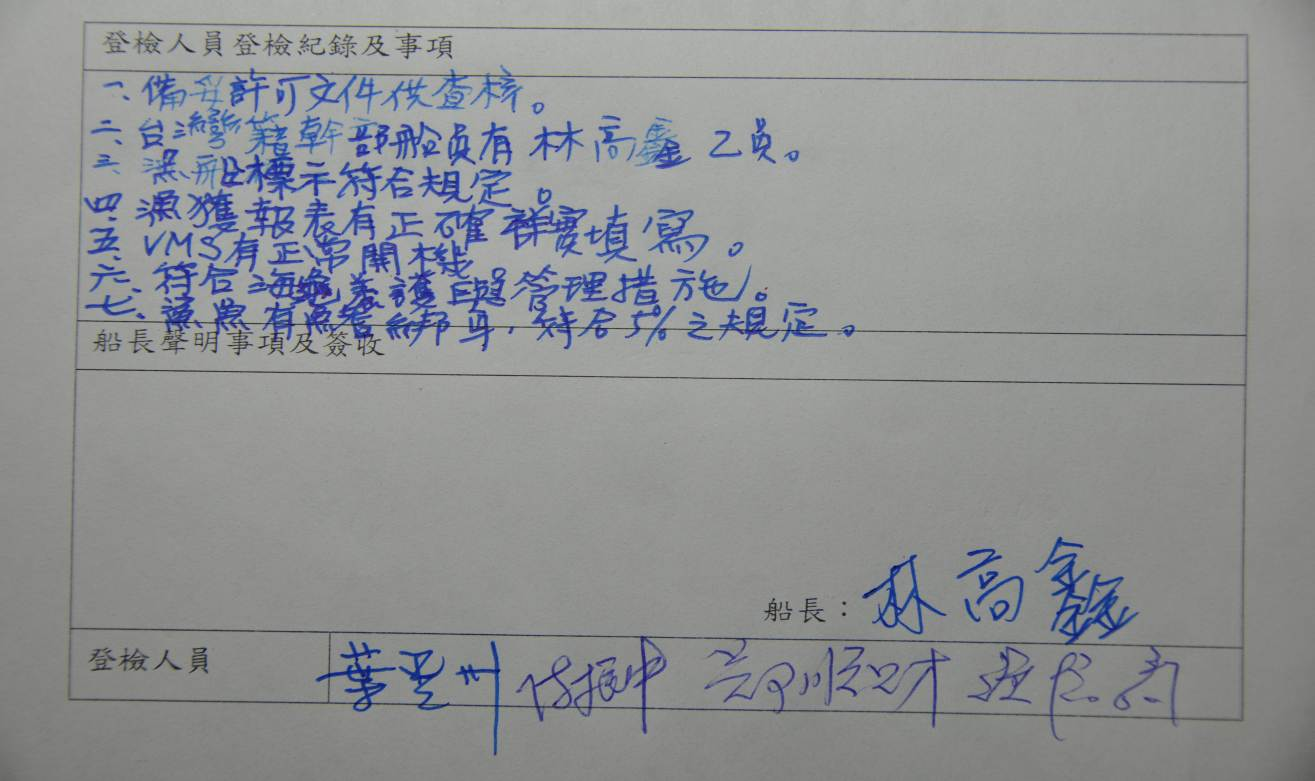 登檢人員登檢紀錄及事項
一、備妥許可文件供查核。
二、台灣籍幹部船員有林高鑫乙員。
三、漁船標示符合規定。
四、漁獲報表有正確詳實填寫。
五、VMS有正常開機。
六、符合海龜養護與管理措施。
七、鯊魚有魚管綁身,符合5%之規定。
船長聲明事項及簽收
船長：林高鑫
登檢人員